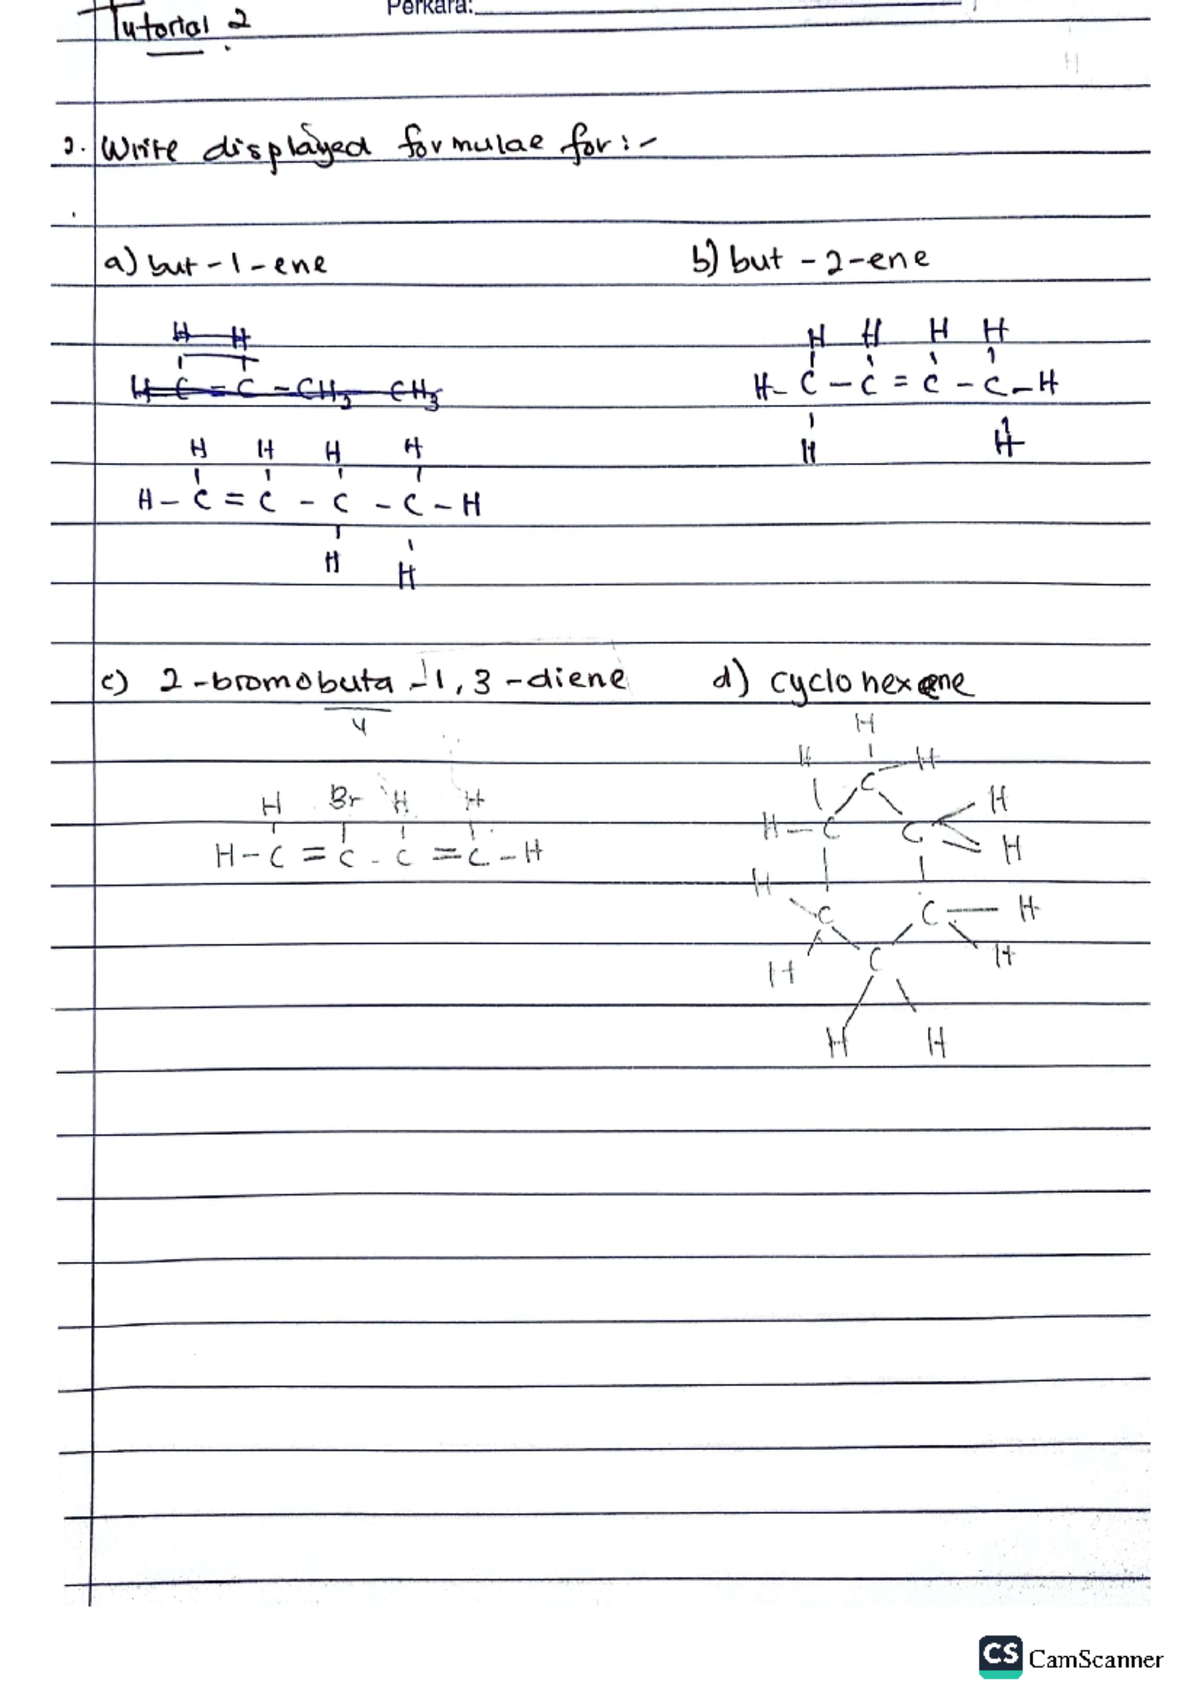 Perkara:
Tutorial 2
2. Write displayed formulae for :-
a) but-1-ene b) but-2-ene
H H H H
H H
H - C - C = C - C - H
H C = C - CH2 CH3
H H
H H H H
H - C = C - C - C - H
H H
c) 2-bromobuta-1,3-diene d) cyclohexene
4
H
H H
C
H Br H H
H
H - C C
H - C = C - C = C - H
H
H
C C - H
C
H
H
H H
CS CamScanner